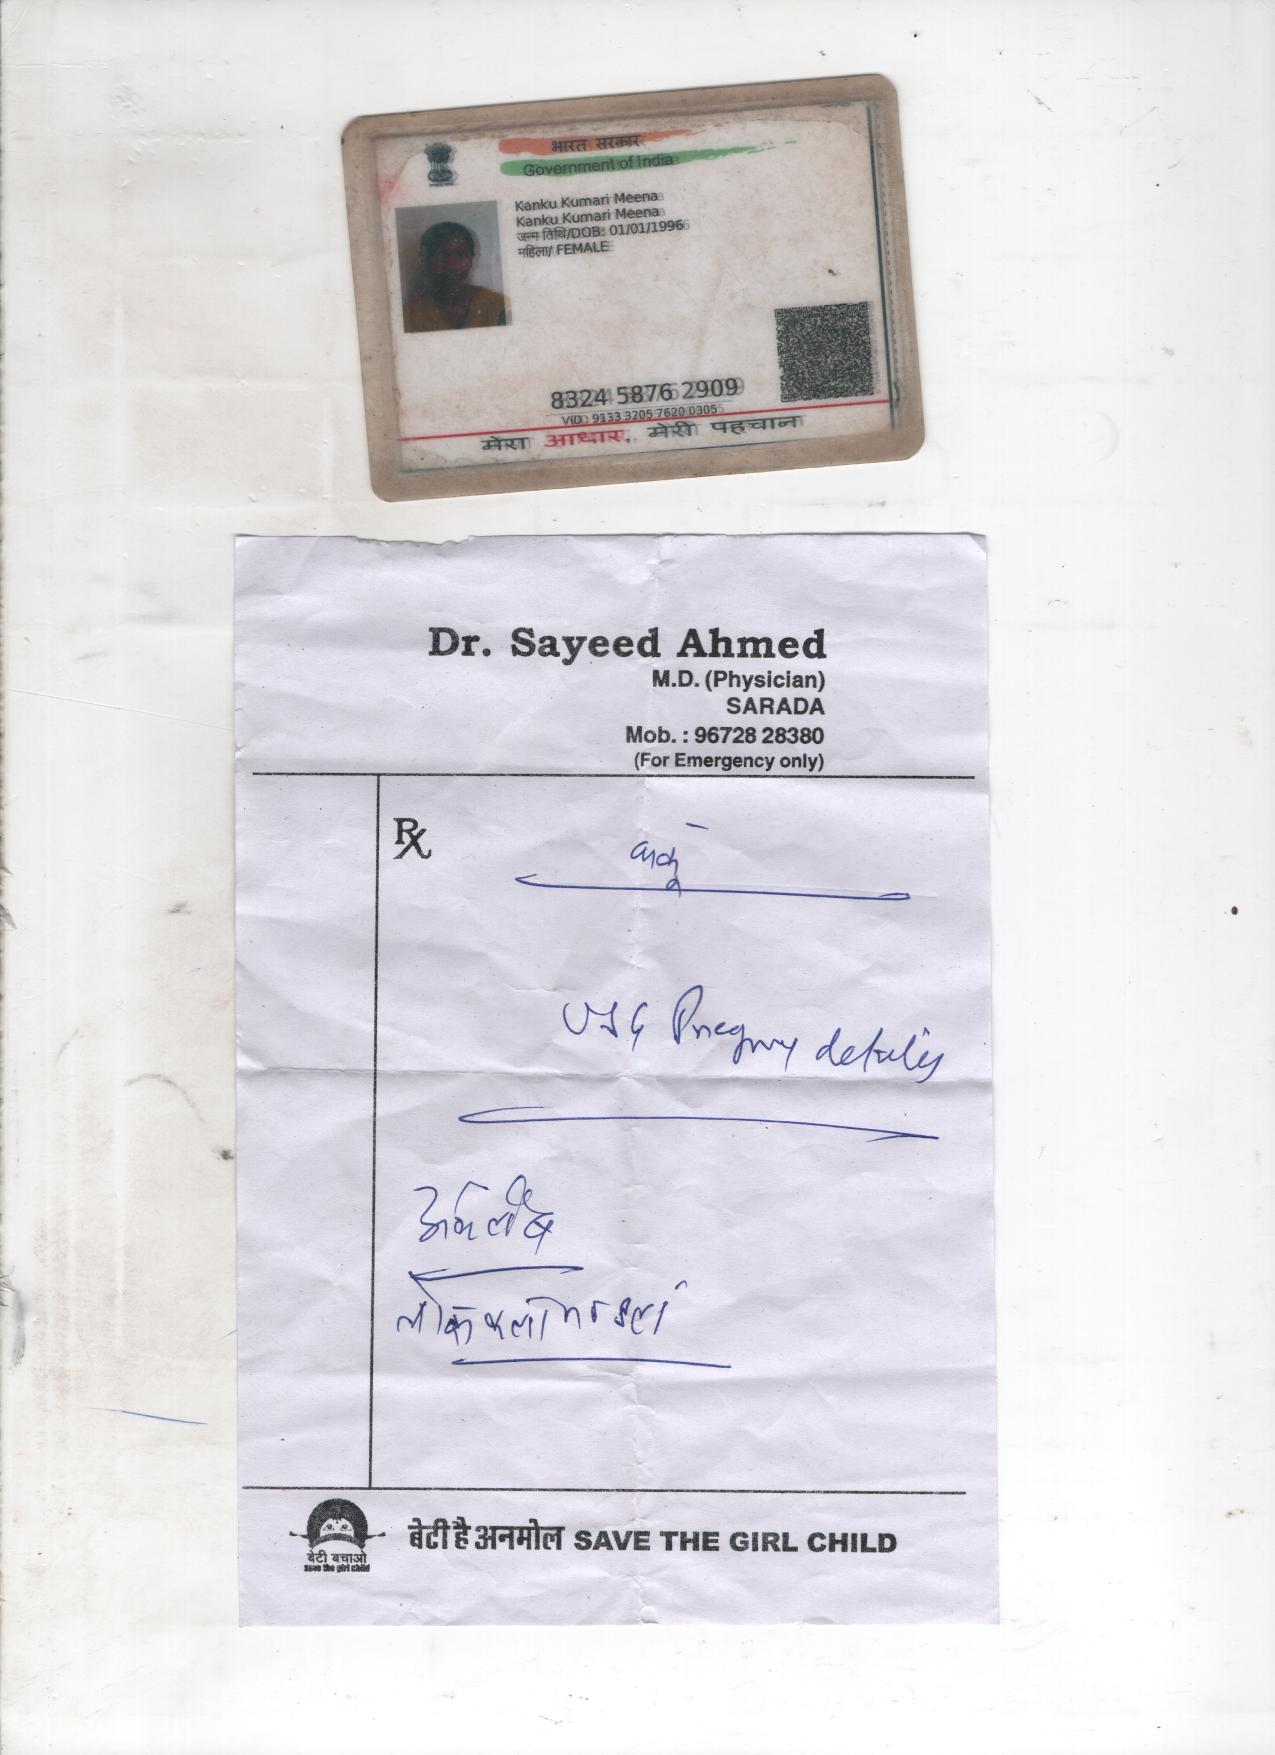 भारत सरकार
Government of India
Kanku Kumari Meena
Kanku Kumari Meena
जन्म तिथि/DOB: 01/01/1996
महिला/ FEMALE
8324 5876 2909
VID: 9133 3205 7620 0305
मेरा आधार, मेरी पहचान
Dr. Sayeed Ahmed
M.D. (Physician)
SARADA
Mob. : 96728 28380
(For Emergency only)
Rx
USG Pregnancy details
बेटी है अनमोल SAVE THE GIRL CHILD
बेटी बचाओ
save the girl child